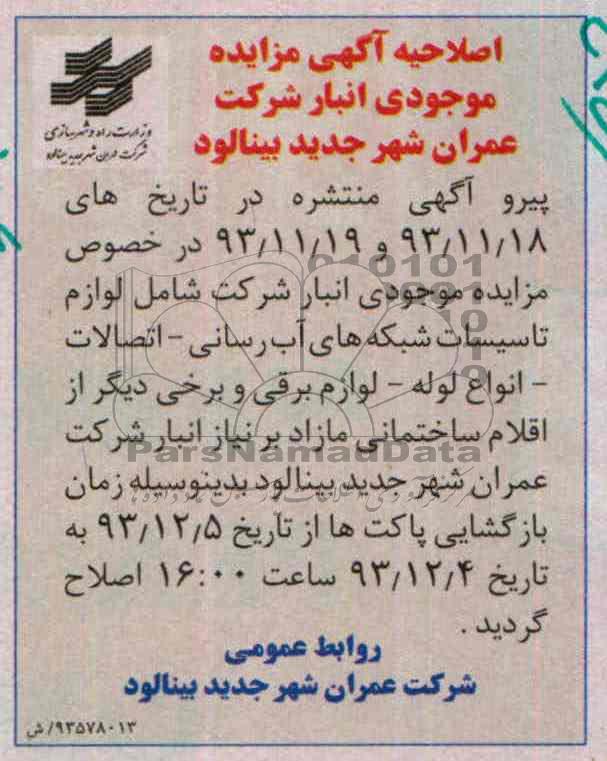 اصلاحیه آگهی مزایده
موجودی انبار شرکت
عمران شهر جدید بینالود
وزارت راه و شهرسازی
شرکت عمران شهر جدید بینالود
پیرو آگهی منتشره در تاریخ های
۹۳/۱۱/۱۸ و ۹۳/۱۱/۱۹ در خصوص
مزایده موجودی انبار شرکت شامل لوازم
تاسیسات شبکه های آب رسانی - اتصالات
- انواع لوله - لوازم برقی و برخی دیگر از
اقلام ساختمانی مازاد بر نیاز انبار شرکت
ParsNamadData
عمران شهر جدید بینالود بدینوسیله زمان
بازگشایی پاکت ها از تاریخ ۹۳/۱۲/۵ به
تاریخ ۹۳/۱۲/۴ ساعت ۱۶:۰۰ اصلاح
گردید .
روابط عمومی
شرکت عمران شهر جدید بینالود
۹۳۵۷۸۰۱۳/ش